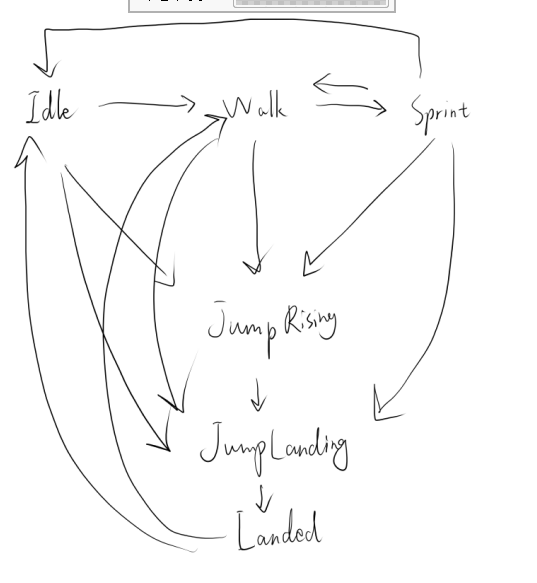 Idle Walk Sprint
Jump Rising
JumpLanding
Landed